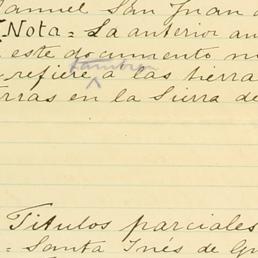 Manuel San Juan
[Nota = La anterior an
este documento n
tambien
refiere a las tierra
rras en la Sierra de
Titulos parciales
= Santa Inés de Gu